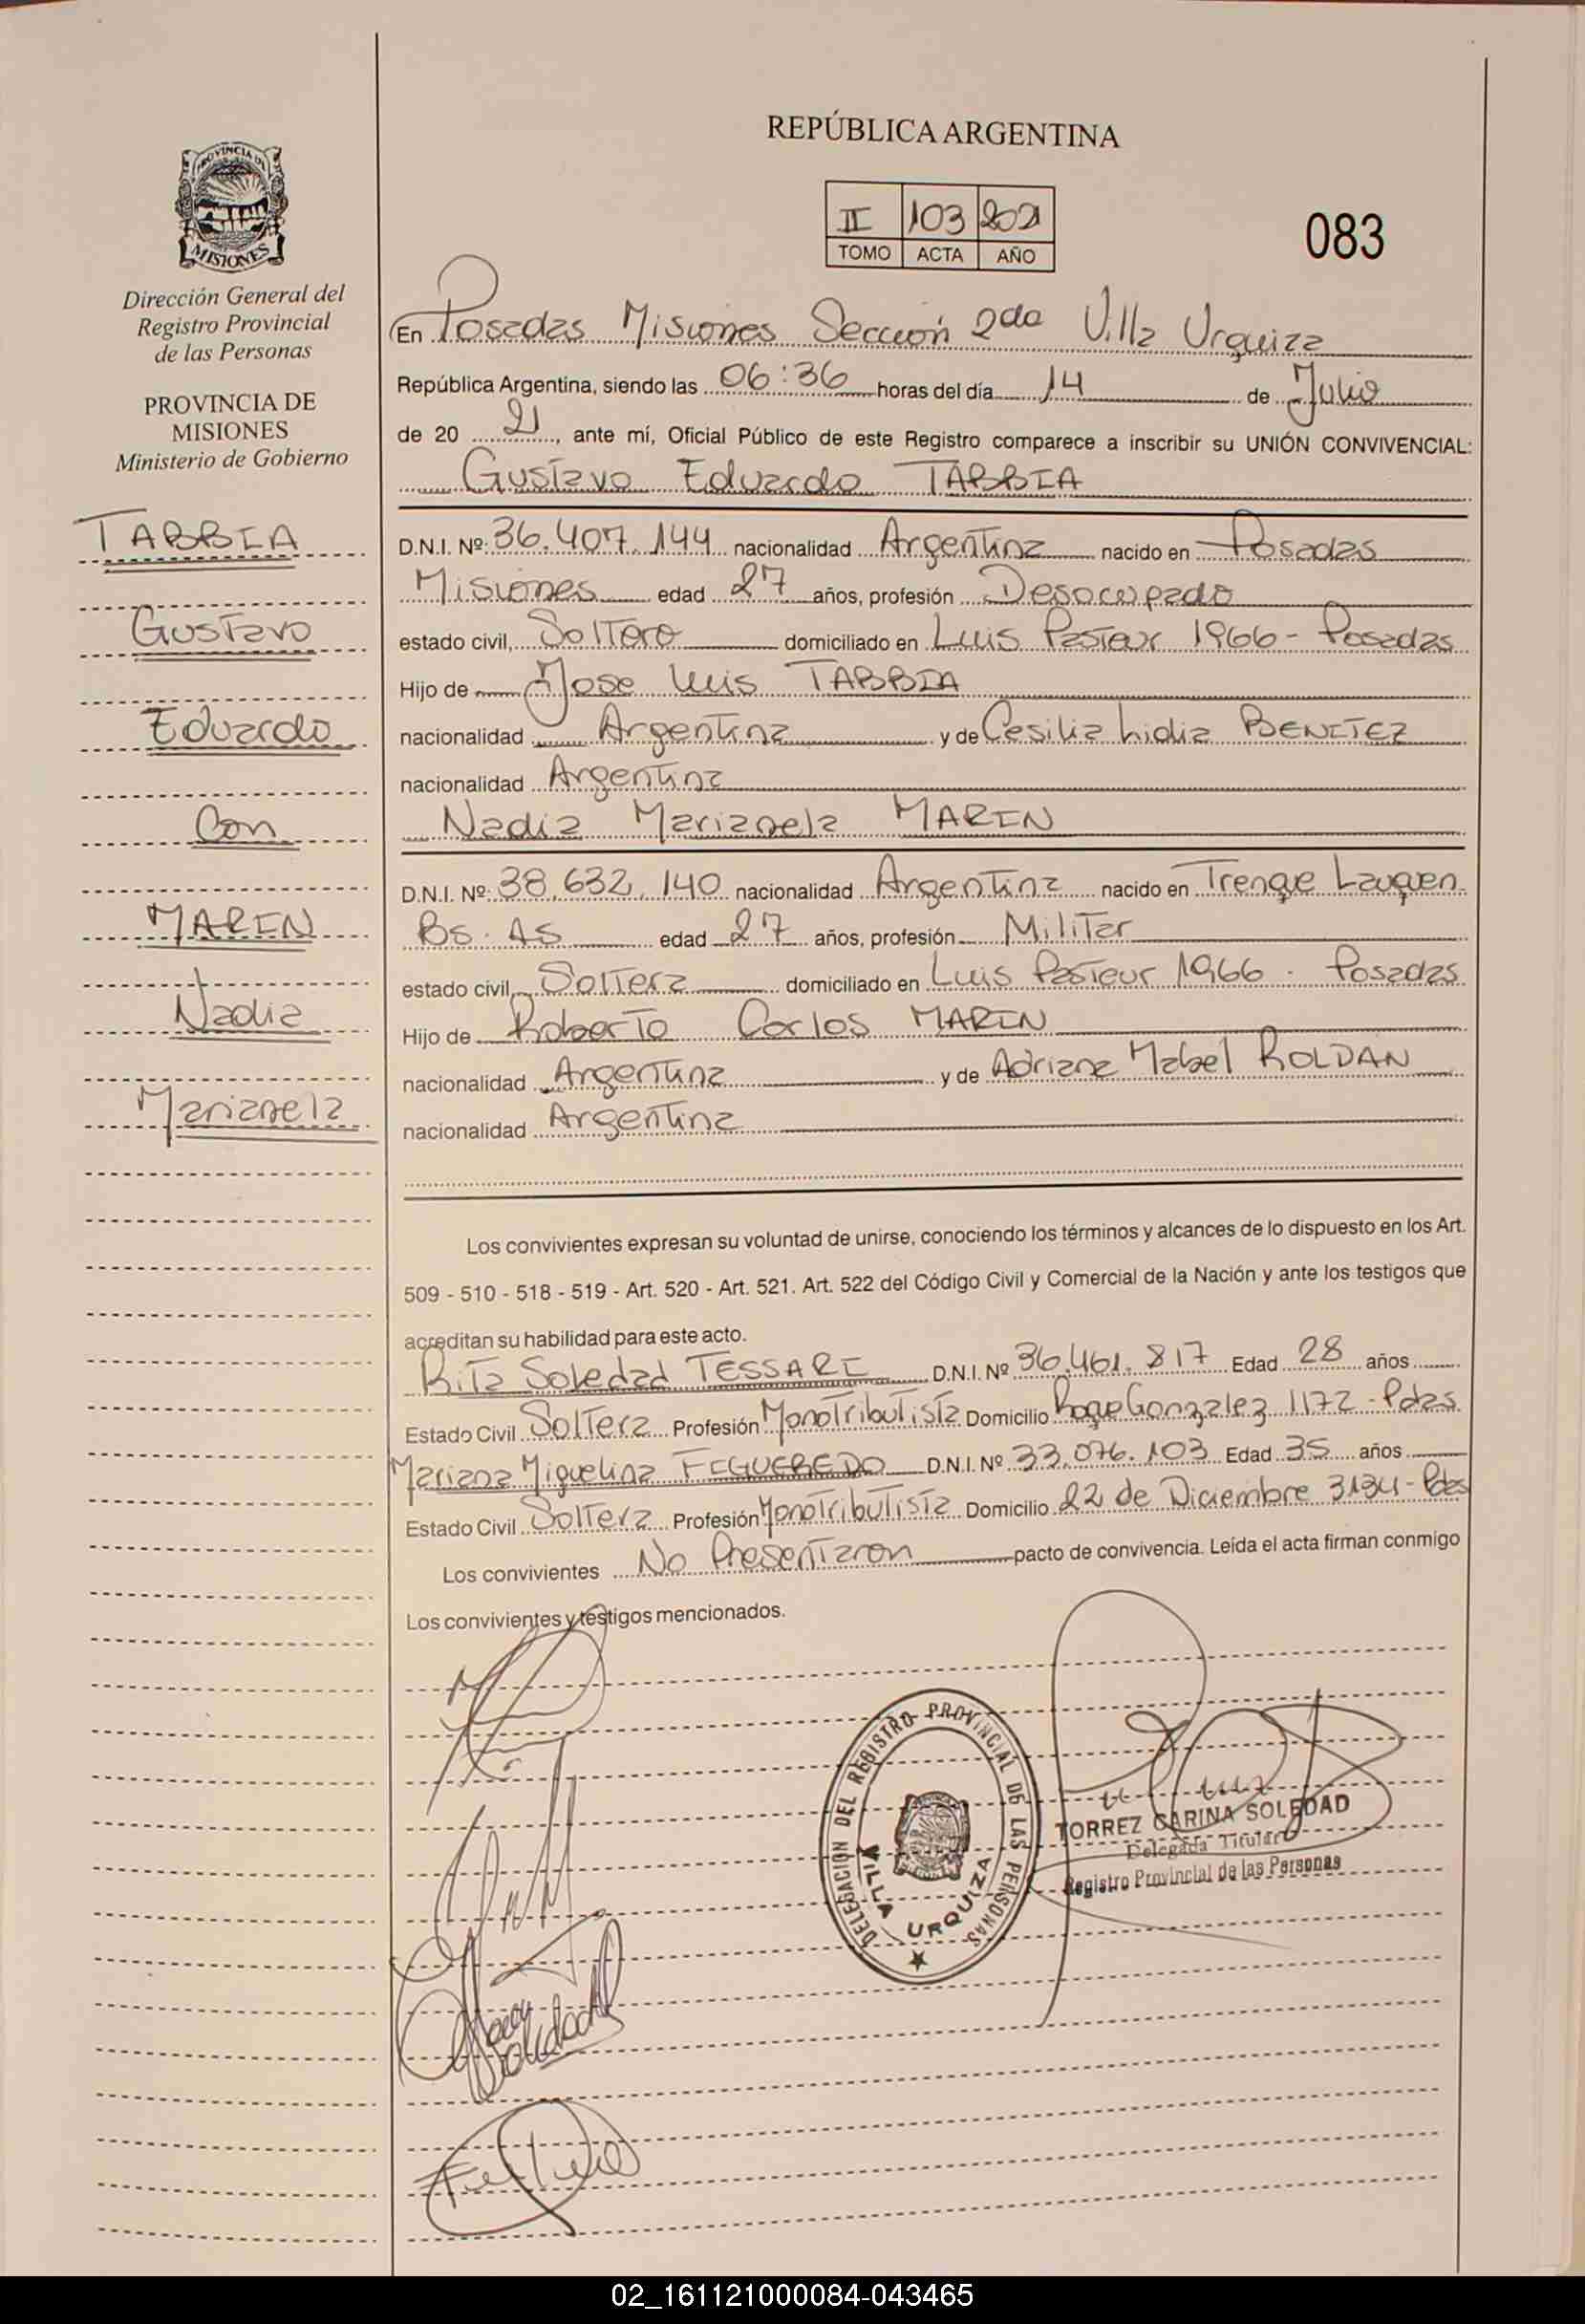 REPÚBLICA ARGENTINA
II 103 2021
TOMO ACTA AÑO
083
PROVINCIA DE
MISIONES
Dirección General del
Registro Provincial
de las Personas
PROVINCIA DE
MISIONES
Ministerio de Gobierno
TABBIA
Gustavo
Eduardo
Con
MARIN
Nadia
Marianela
En Posadas Misiones Sección 2da Villa Urquiza
República Argentina, siendo las 06:36 horas del día 14 de Julio
de 20 21, ante mí, Oficial Público de este Registro comparece a inscribir su UNIÓN CONVIVENCIAL:
Gustavo Eduardo TABBIA
D.N.I. Nº: 36.407.144 nacionalidad Argentina nacido en Posadas
Misiones edad 27 años, profesión Desocupado
estado civil, Soltero domiciliado en Luis Pasteur 1966 - Posadas
Hijo de Jose Luis TABBIA
nacionalidad Argentina y de Cesilia Lidia BENITEZ
nacionalidad Argentina
Nadia Marianela MARIN
D.N.I. Nº: 38.632.140 nacionalidad Argentina nacido en Trenque Lauquen
Bs. As edad 27 años, profesión Militar
estado civil, Soltera domiciliado en Luis Pasteur 1966 - Posadas
Hijo de Roberto Carlos MARIN
nacionalidad Argentina y de Adriana Mabel ROLDAN
nacionalidad Argentina
Los convivientes expresan su voluntad de unirse, conociendo los términos y alcances de lo dispuesto en los Art.
509 - 510 - 518 - 519 - Art. 520 - Art. 521. Art. 522 del Código Civil y Comercial de la Nación y ante los testigos que
acreditan su habilidad para este acto.
Rita Soledad TESSARI D.N.I. Nº 36.461.817 Edad 28 años
Estado Civil Soltera Profesión Monotributista Domicilio Roque Gonzalez 1172 - Pdas
Mariana Miguelina FIGUEREDO D.N.I. Nº 33.076.103 Edad 35 años
Estado Civil Soltera Profesión Monotributista Domicilio 22 de Diciembre 3134 - Pdas
Los convivientes No Presentaron pacto de convivencia. Leída el acta firman conmigo
Los convivientes y testigos mencionados.
DELEGACION DEL REGISTRO PROVINCIAL DE LAS PERSONAS
VILLA URQUIZA
TORREZ CARINA SOLEDAD
Delegada Titular
Registro Provincial de las Personas
Soledad
02_161121000084-043465